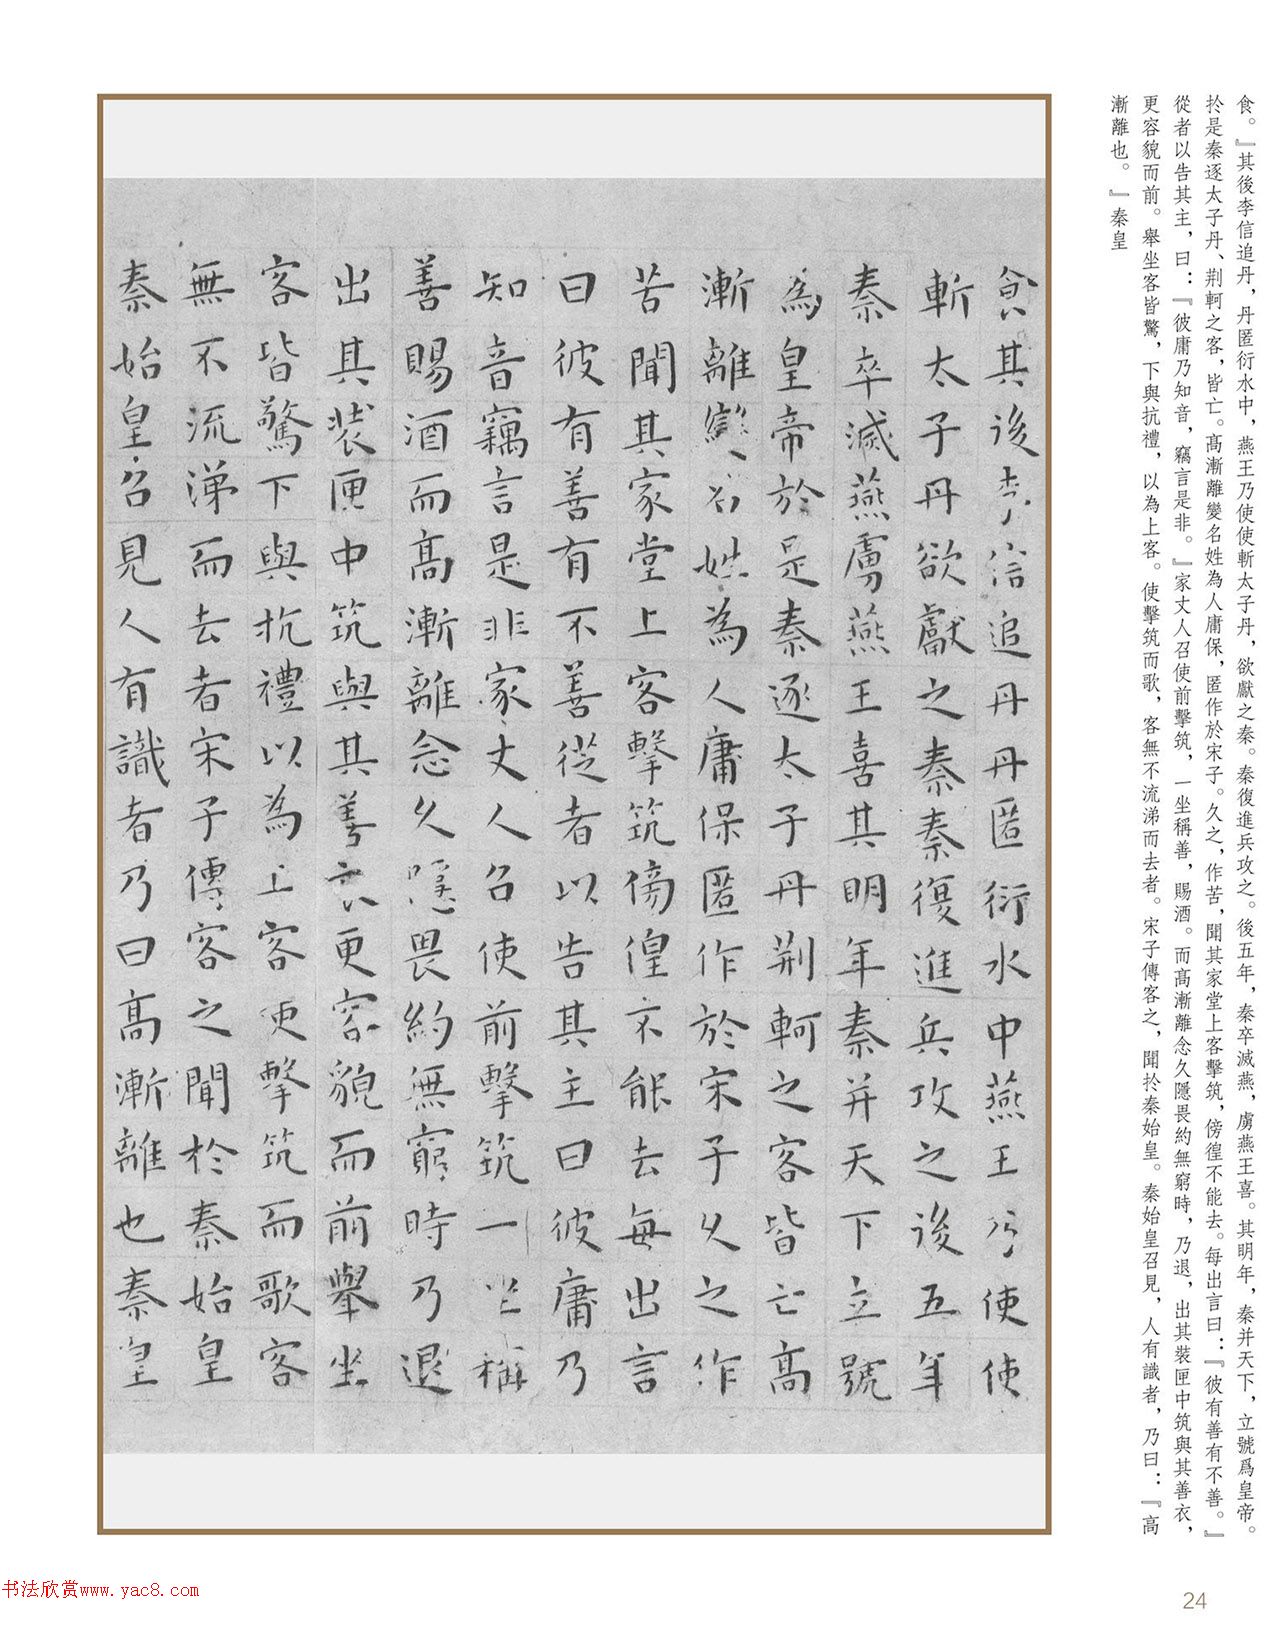 食。』其後李信追丹，丹匿衍水中，燕王乃使使斬太子丹，欲獻之秦。秦復進兵攻之。後五年，秦卒滅燕，虜燕王喜。其明年，秦并天下，立號爲皇帝。
於是秦逐太子丹、荆軻之客，皆亡。高漸離變名姓為人庸保，匿作於宋子。久之，作苦，聞其家堂上客擊筑，傍徨不能去。每出言曰：『彼有善有不善。』
從者以告其主，曰：『彼庸乃知音，竊言是非。』家丈人召使前擊筑，一坐稱善，賜酒。而高漸離念久隱畏約無窮時，乃退，出其裝匣中筑與其善衣，
更容貌而前。舉坐客皆驚，下與抗禮，以為上客。使擊筑而歌，客無不流涕而去者。宋子傳客之，聞於秦始皇。秦始皇召見，人有識者，乃曰：『高
漸離也。』秦皇
食其後李信追丹丹匿衍水中燕王乃使使
斬太子丹欲獻之秦秦復進兵攻之後五年
秦卒滅燕虜燕王喜其明年秦并天下立號
為皇帝於是秦逐太子丹荆軻之客皆亡高
漸離變名姓為人庸保匿作於宋子久之作
苦聞其家堂上客擊筑傍徨不能去每出言
曰彼有善有不善從者以告其主曰彼庸乃
知音竊言是非家丈人召使前擊筑一坐稱
善賜酒而高漸離念久隱畏約無窮時乃退
出其裝匣中筑與其善衣更容貌而前舉坐
客皆驚下與抗禮以為上客更擊筑而歌客
無不流涕而去者宋子傳客之聞於秦始皇
秦始皇召見人有識者乃曰高漸離也秦皇
书法欣赏www.yac8.com
24